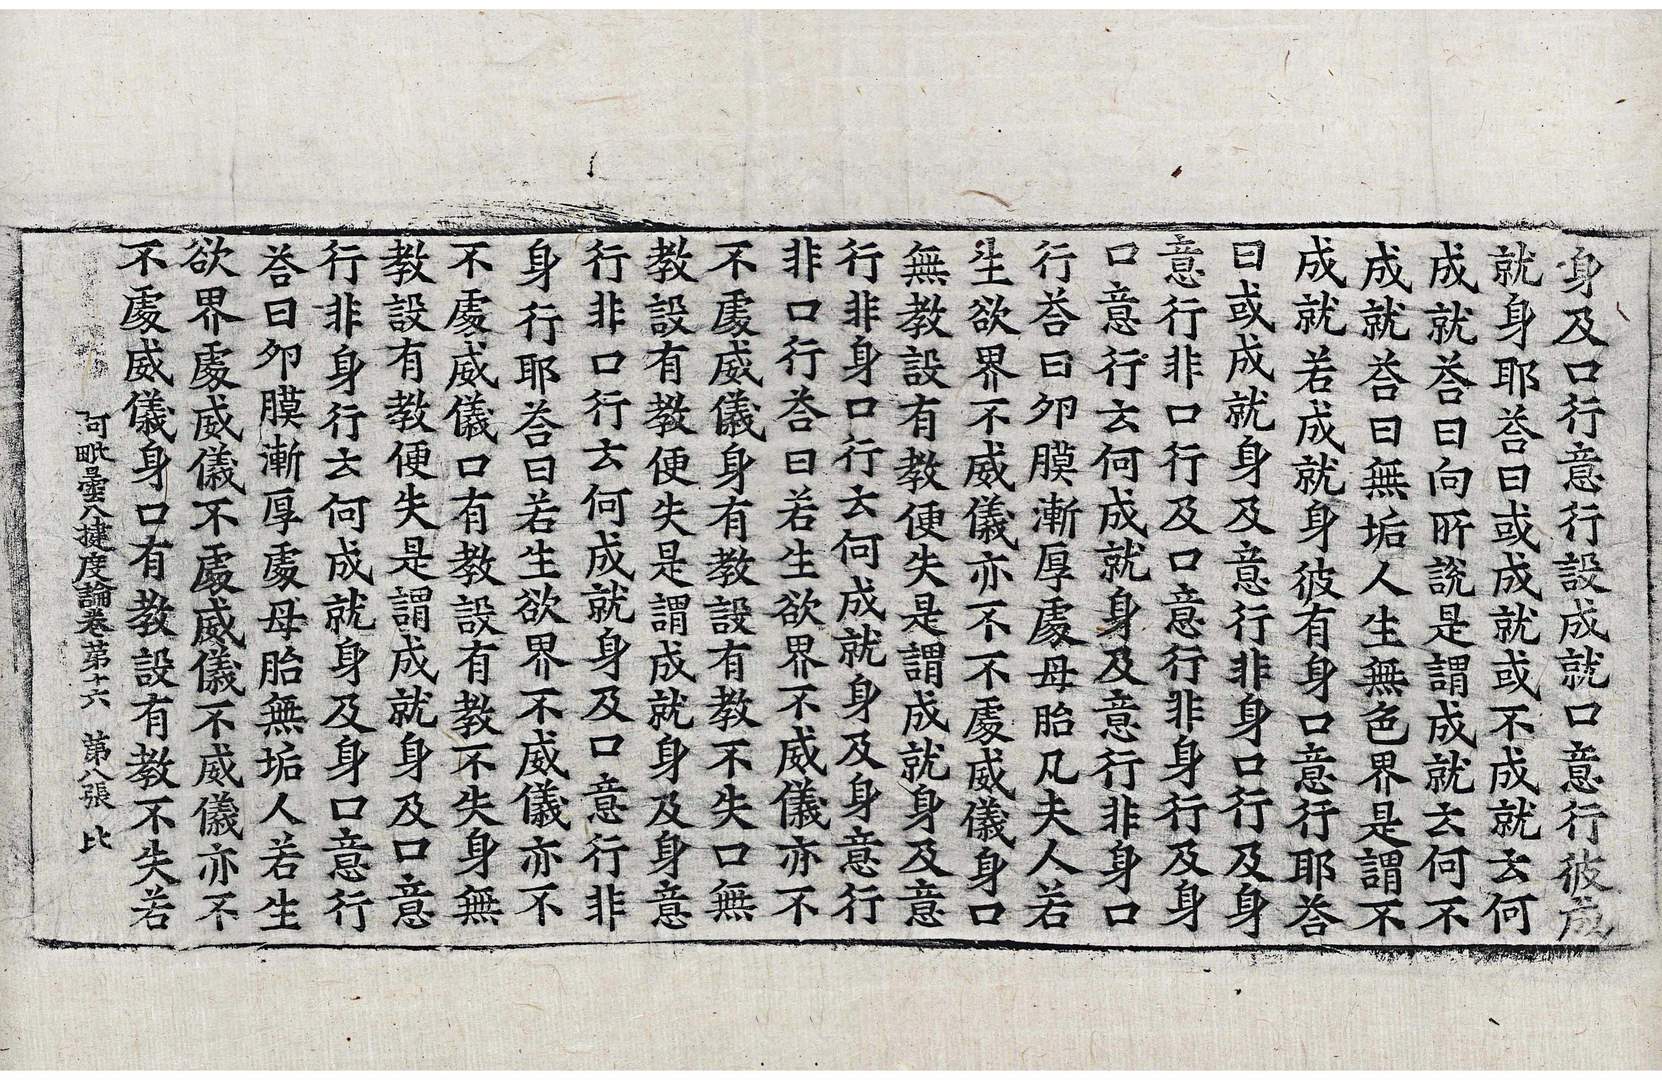 身及口行意行設成就口意行彼成
就身耶荅曰或成就或不成就云何
成就荅曰向所說是謂成就云何不
成就荅曰無垢人生無色界是謂不
成就若成就身彼有身口意行耶荅
曰或成就身及意行非身口行及身
意行非口行及口意行非身行及身
口意行云何成就身及意行非身口
行荅曰夘膜漸厚處母胎凡夫人若
生欲界不威儀亦不不處威儀身口
無教設有教便失是謂成就身及意
行非身口行云何成就身及身意行
非口行荅曰若生欲界不威儀亦不
不處威儀身有教設有教不失口無
教設有教便失是謂成就身及身意
行非口行云何成就身及口意行非
身行耶荅曰若生欲界不威儀亦不
不處威儀口有教設有教不失身無
教設有教便失是謂成就身及口意
行非身行云何成就身及身口意行
荅曰夘膜漸厚處母胎無垢人若生
欲界處威儀不處威儀不威儀亦不
不處威儀身口有教設有教不失若
阿毗曇八揵度論卷第十六 第八張 比